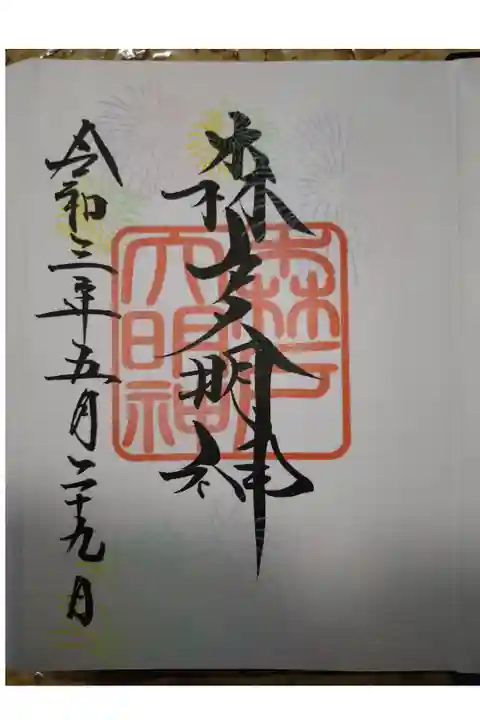 森戸大明神
令和三年五月二十九日
森戸
大明神